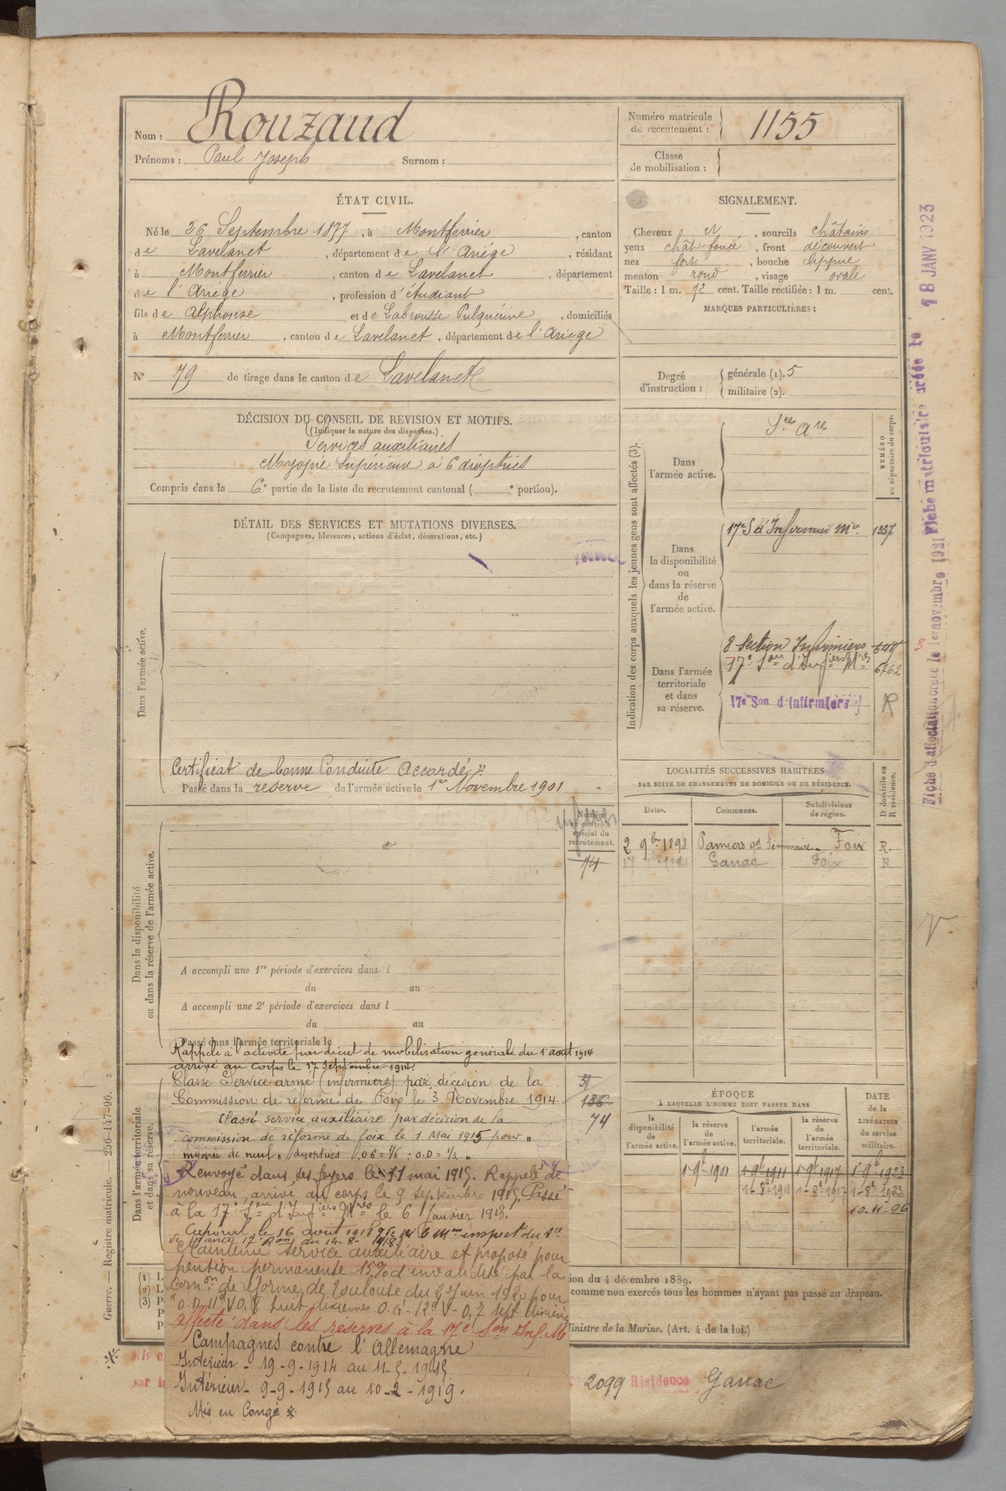 Nom : Rouzaud
Prénoms : Paul Joseph Surnom :
Numéro matricule de recrutement : 1155
Classe de mobilisation :
ÉTAT CIVIL.
Né le 26 Septembre 1877, à Montferrier, canton
de Lavelanet, département de l'Ariège, résidant
à Montferrier, canton de Lavelanet, département
de l'Ariège, profession d'étudiant
fils de Alphonse et de Labrousse Pulquérine, domiciliés
à Montferrier, canton de Lavelanet, département de l'Ariège
N° 79 de tirage dans le canton de Lavelanet
SIGNALEMENT.
Cheveux N, sourcils châtains
yeux chât foncé, front découvert
nez fort, bouche lippue
menton rond, visage ovale
Taille : 1 m. 72 cent. Taille rectifiée : 1 m. cent.
MARQUES PARTICULIÈRES :
Degré d'instruction : générale (1). 5
militaire (2).
DÉCISION DU CONSEIL DE REVISION ET MOTIFS.
(Indiquer la nature des dispenses.)
Services auxiliaires
Myopie Supérieure à 6 dioptries
Compris dans la 6e partie de la liste du recrutement cantonal ( e portion).
DÉTAIL DES SERVICES ET MUTATIONS DIVERSES.
(Campagnes, blessures, actions d'éclat, décorations, etc.)
Dans l'armée active.
Certificat de bonne Conduite Accordé
Passé dans la réserve de l'armée active le 1er Novembre 1901
Indication des corps auxquels les jeunes gens sont affectés (3).
NUMÉRO au répertoire du corps.
Dans l'armée active.
Sce Are
Dans la disponibilité ou dans la réserve de l'armée active.
17e Son d'Infirmiers Mres 1337
Dans l'armée territoriale et dans sa réserve.
8 Section Infirmiers
17e Son d'Infiers Mres 6762
17e Son d'infirmiers R
LOCALITÉS SUCCESSIVES HABITÉES
PAR SUITE DE CHANGEMENTS DE DOMICILE OU DE RÉSIDENCE.
D domicile ou R résidence.
Dates. Communes. Subdivisions de région.
2 9bre 1898 Pamiers gd Séminaire Foix R.
Ganac Foix R
Numéro au contrôle spécial du recrutement.
74
Dans la disponibilité ou dans la réserve de l'armée active.
A accompli une 1re période d'exercices dans l
du au
A accompli une 2e période d'exercices dans l
du au
Passé dans l'armée territoriale le
Rappelé à l'activité par décret de mobilisation générale du 1 août 1914
arrivé au corps le 17 septembre 1914.
Dans l'armée territoriale et dans sa réserve.
Classé Service armé (infirmiers) par décision de la
Commission de réforme de Foix le 3 Novembre 1914
Classé service auxiliaire par décision de la
commission de réforme de Foix le 1 Mai 1915 pour "
myopie de neuf dioptries
Renvoyé dans ses foyers le 11 mai 1915. Rappelé de
nouveau, arrivé au corps le 9 septembre 1915. Passé
à la 17e Son d'Infiers Mres le 6 Janvier 1918.
Caporal le 16 août 1918
Maintenu service auxiliaire et proposé pour
pension permanente 15% d'invalidité par la
Comon de réforme de Toulouse du 2 Juin 1920 pour
Affecté dans les réserves à la 17e Son Inf. M
Campagnes contre l'Allemagne
Intérieur - 19-9-1914 au 11-5-1915
Intérieur - 9-9-1915 au 10-2-1919.
Mis en Congé *
74
ÉPOQUE
À LAQUELLE L'HOMME DOIT PASSER DANS
la disponibilité de l'armée active. la réserve de l'armée active. l'armée territoriale. la réserve de l'armée territoriale.
DATE de la LIBÉRATION du service militaire.
1 9b 1901 1 9b 1911 1 9b 1917 1 9b 1923
10-11-26
ion du 4 décembre 1889.
comme non exercés tous les hommes n'ayant pas passé au drapeau.
Ministre de la Marine. (Art. 4 de la loi.)
2099 Résidence Ganac
Guerre. — Registre matricule. — 256-147-96.
Fiche d'affectation créée le 1er novembre 1921 Fiche matriculaire créée le 18 JANV 1923